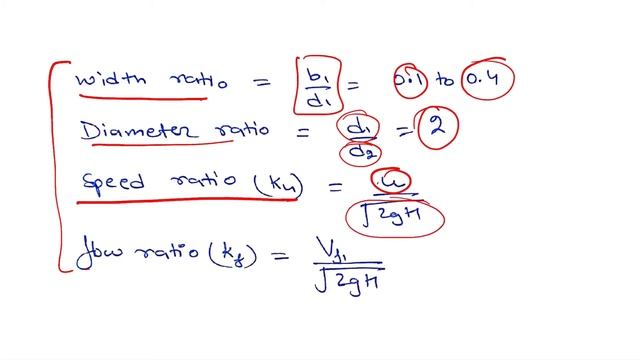 width ratio = b₁/d₁ = 0.1 to 0.4
Diameter ratio = d₁/d₂ = 2
Speed ratio (Ku) = u/√2gH
flow ratio (Kf) = Vf₁/√2gH